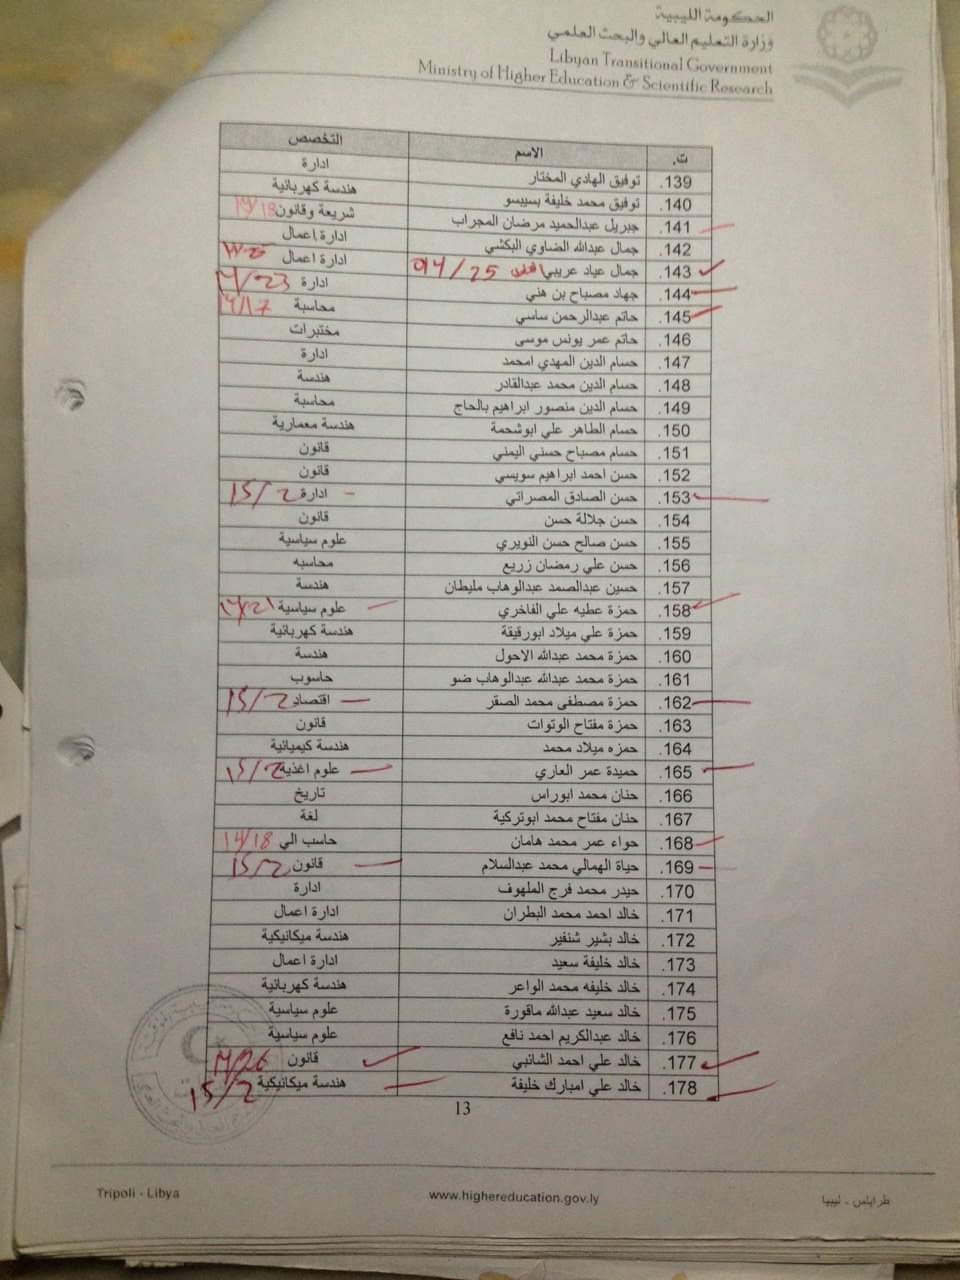 الحكومة الليبية
وزارة التعليم العالي والبحث العلمي
Libyan Transitional Government
Ministry of Higher Education & Scientific Research
ت. الاسم التخصص
139. توفيق الهادي المختار ادارة
140. توفيق محمد خليفة بسيسو هندسة كهربائية
141. جبريل عبدالحميد مرضان المجراب شريعة وقانون 14/18
142. جمال عبدالله الضاوي البكشي ادارة اعمال
143. جمال عياد عريبي 014/25 ادارة اعمال
144. جهاد مصباح بن هني ادارة 14/23
145. حاتم عبدالرحمن ساسي محاسبة 14/17
146. حاتم عمر يونس موسى مختبرات
147. حسام الدين المهدي امحمد ادارة
148. حسام الدين محمد عبدالقادر هندسة
149. حسام الدين منصور ابراهيم بالحاج محاسبة
150. حسام الطاهر علي ابوشحمة هندسة معمارية
151. حسام مصباح حسني اليمني قانون
152. حسن احمد ابراهيم سويسي قانون
153. حسن الصادق المصراتي ادارة 15/2
154. حسن جلالة حسن قانون
155. حسن صالح حسن النويري علوم سياسية
156. حسن علي رمضان زريع محاسبه
157. حسين عبدالصمد عبدالوهاب مليطان هندسة
158. حمزة عطيه علي الفاخري علوم سياسية 14/21
159. حمزة علي ميلاد ابورقيقة هندسة كهربائية
160. حمزة محمد عبدالله الاحول هندسة
161. حمزة محمد عبدالله عبدالوهاب ضو حاسوب
162. حمزة مصطفى محمد الصقر اقتصاد 15/2
163. حمزة مفتاح الوتوات قانون
164. حمزه ميلاد محمد هندسة كيميائية
165. حميدة عمر العاري علوم اغذية 15/2
166. حنان محمد ابوراس تاريخ
167. حنان مفتاح محمد ابوتركية لغة
168. حواء عمر محمد هامان حاسب الي 14/18
169. حياة الهمالي محمد عبدالسلام قانون 15/2
170. حيدر محمد فرج الملهوف ادارة
171. خالد احمد محمد البطران ادارة اعمال
172. خالد بشير شنفير هندسة ميكانيكية
173. خالد خليفة سعيد ادارة اعمال
174. خالد خليفه محمد الواعر هندسة كهربائية
175. خالد سعيد عبدالله ماقورة علوم سياسية
176. خالد عبدالكريم احمد نافع علوم سياسية
177. خالد علي احمد الشائبي قانون 14/26
178. خالد علي امبارك خليفة هندسة ميكانيكية 15/2
13
Tripoli - Libya www.highereducation.gov.ly طرابلس - ليبيا